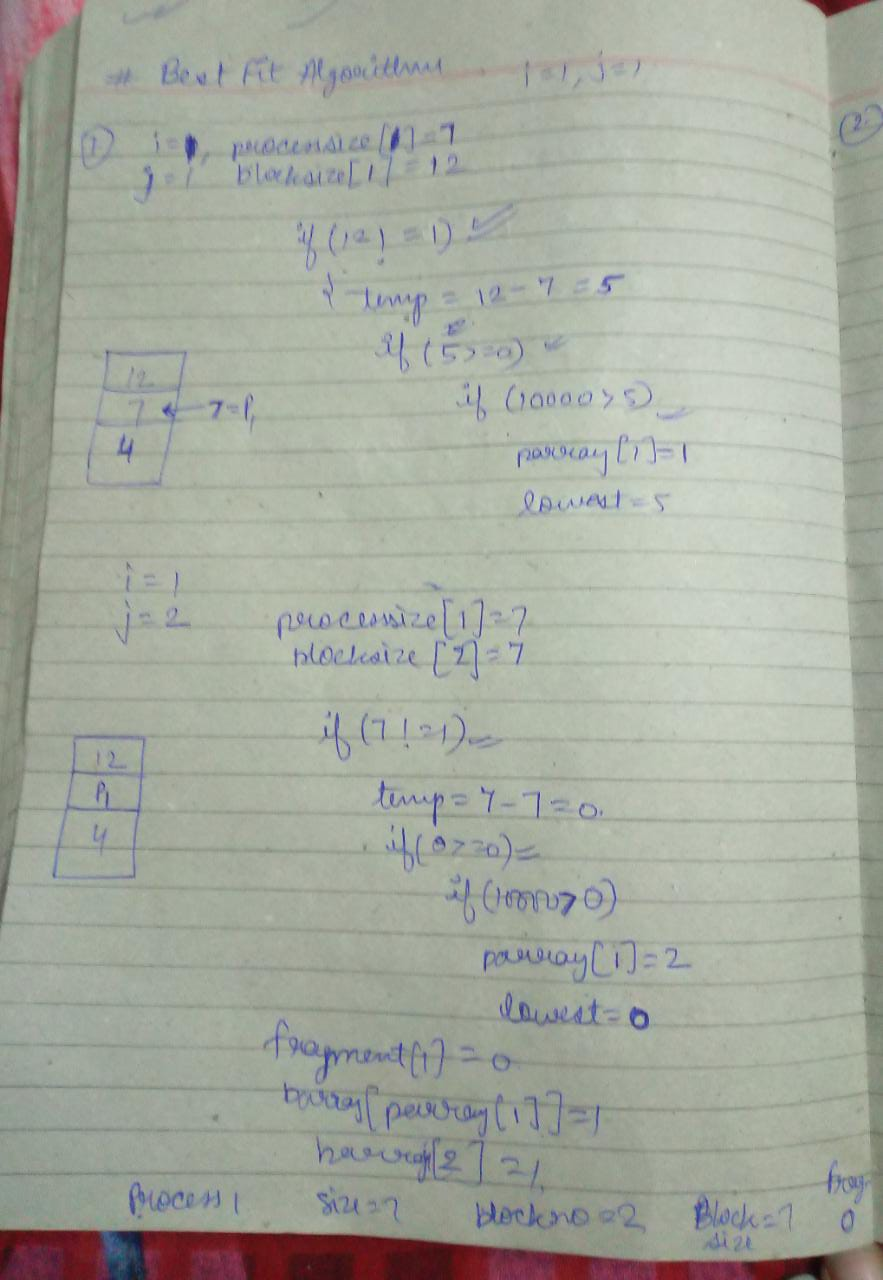 # Best Fit Algorithm i=1, j=1
(1) i=1, processize[1]=7
j=1 blocksize[1]=12
if (12! =1)
{ temp = 12-7=5
if (5>=0)
12
if (10000>5)
7 ← 7=P1
4
parray[1]=1
lowest=5
i=1
j=2 processize[1]=7
blocksize[2]=7
if (7!=1)
12
P1
temp=7-7=0.
4
if(0>=0)
if (10000>0)
parray[1]=2
lowest=0
fragment[1]=0
barray[parray[1]]=1
barray[2]=1
Process 1 size=7 blockno=2 Block=7 frag
size 0
(2)